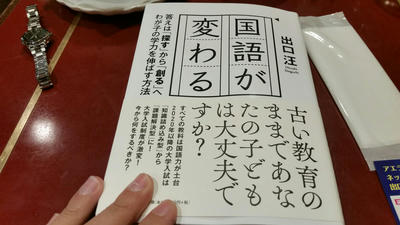 国語が
変わる
出口汪
答えは「探す」から「創る」へ
わが子の学力を伸ばす方法
古い教育の
ままであな
たの子ども
は大丈夫で
すか？
すべての教科は国語力が土台
2020年以降の大学入試は
「知識詰め込み型」から
「課題解決型」に！
大学入試制度が激変！
今から何をするべきか？